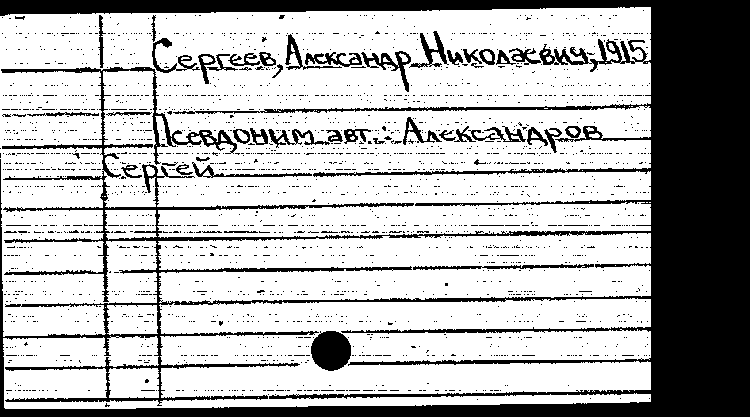 Сергеев, Александр Николаевич, 1915
Псевдоним авт.: Александров
Сергей